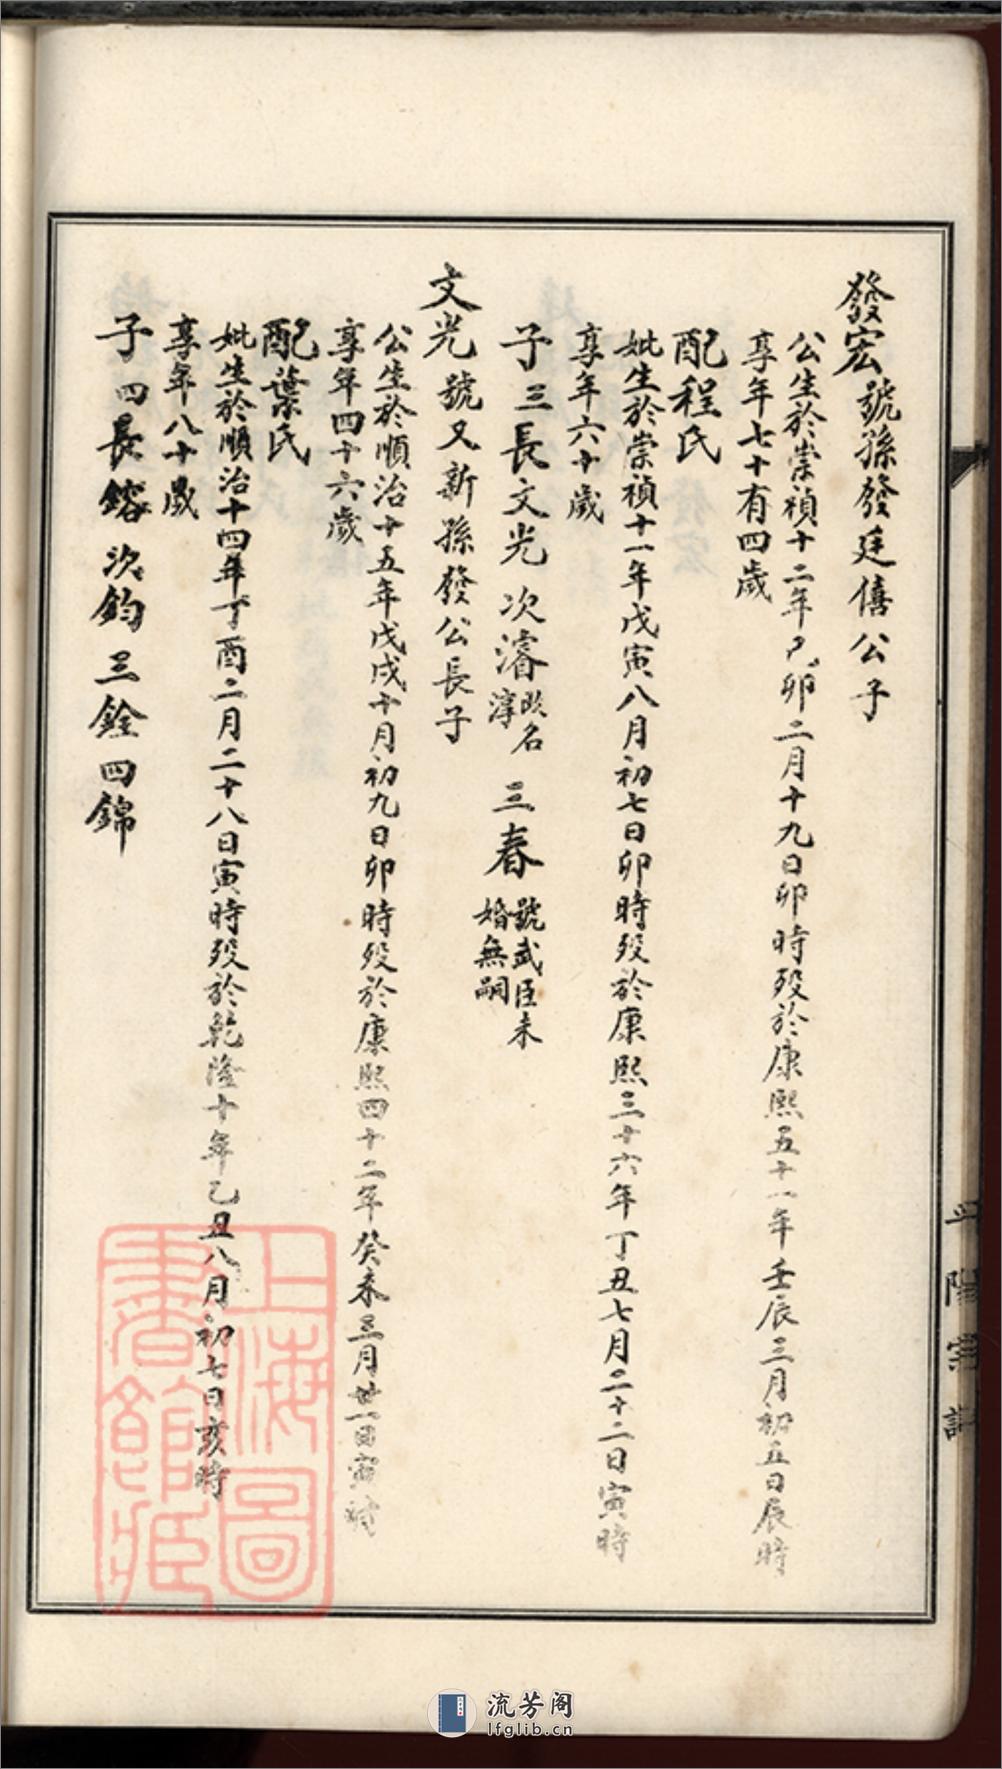 發宏號孫發廷僖公子
公生於崇禎十二年己卯二月十九日卯時歿於康熙五十一年壬辰三月初五日辰時
享年七十有四歲
配程氏
妣生於崇禎十一年戊寅八月初七日卯時歿於康熙三十六年丁丑七月二十二日寅時
享年六十歲
子三長文光 次濬改名淳 三春號武臣未婚無嗣
文光號又新孫發公長子
公生於順治十五年戊戌十月初九日卯時歿於康熙四十二年癸未三月廿一日寅時
享年四十六歲
配葉氏
妣生於順治十四年丁酉二月二十八日寅時歿於乾隆十年乙丑八月初七日亥時
享年八十歲
子四長鎔 次鈞 三銓 四錦
平陽宗譜
上海圖書館藏
流芳阁
lfglib.cn